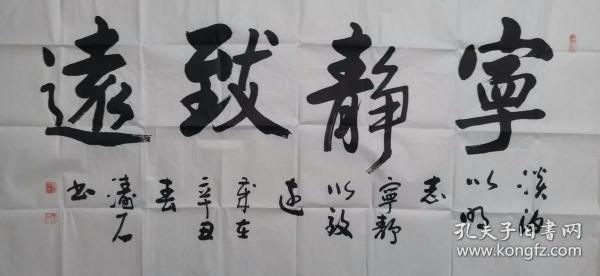 寧靜致遠
淡泊
以明
志
寧靜
以致
遠
歲在
辛丑
春
濤石
書
孔夫子旧书网
www.kongfz.com